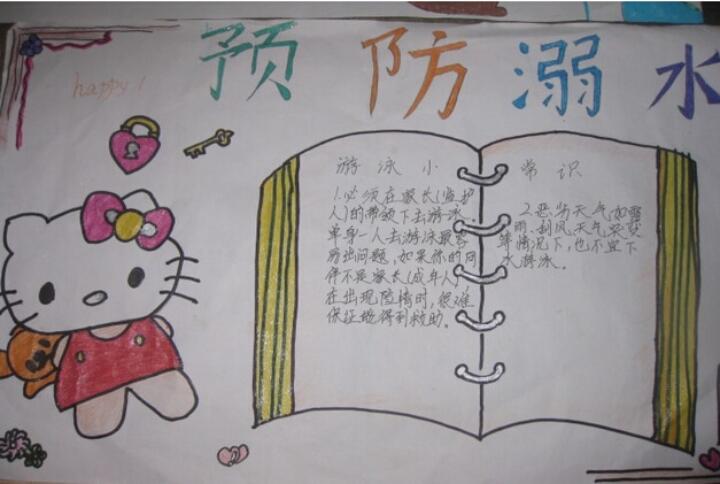 预防溺水
happy!
游泳小常识
1.必须在家长(监护
人)的带领下去游泳。
单身一人去游泳最容
易出问题,如果你的同
伴不是家长(成年人)
在出现险情时,很难
保证能得到救助。
2.恶劣天气如雷
雨、刮风、天气突变
等情况下,也不宜下
水游泳。